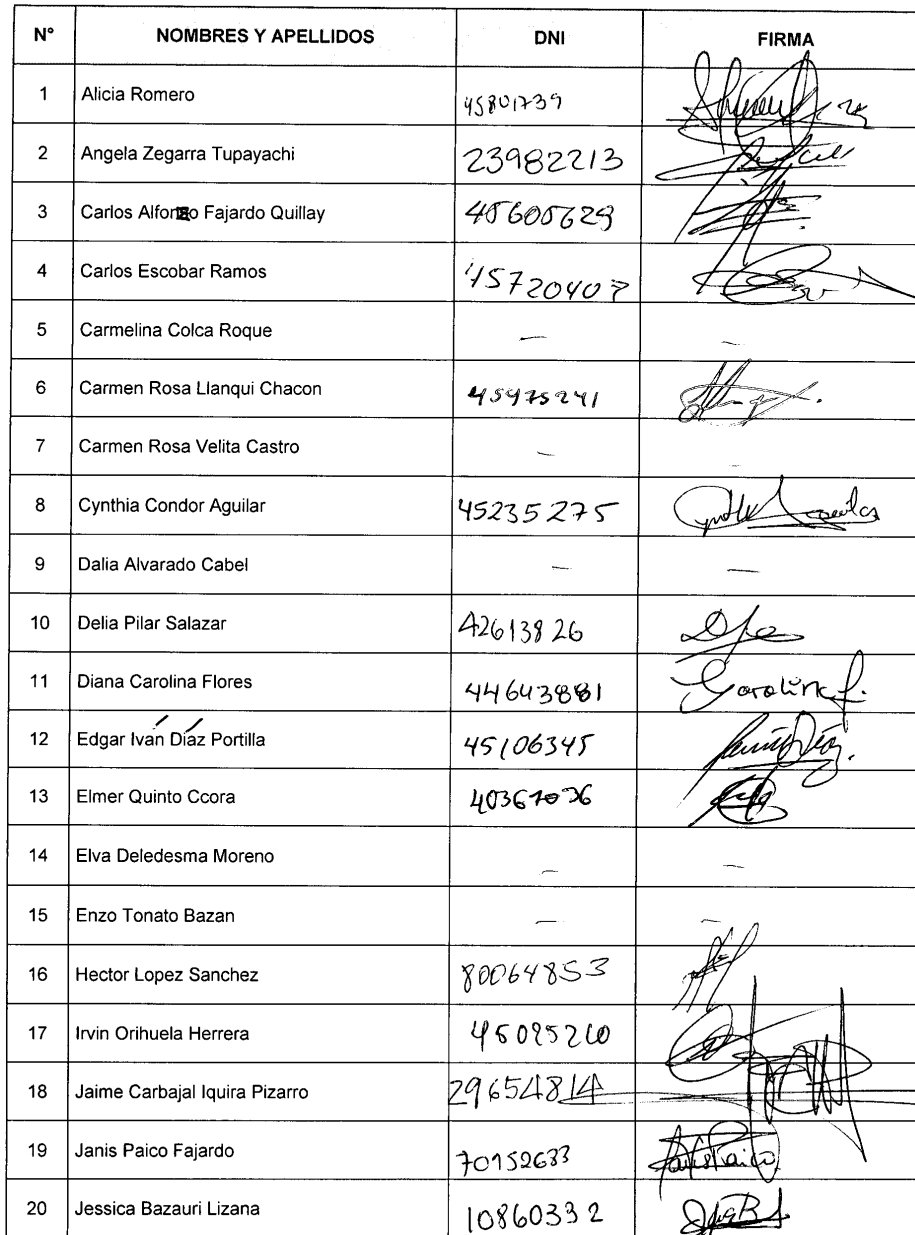 N° NOMBRES Y APELLIDOS DNI FIRMA
1 Alicia Romero 45801739
2 Angela Zegarra Tupayachi 23982213
3 Carlos Alfonso Fajardo Quillay
4 Carlos Escobar Ramos 45720407
5 Carmelina Colca Roque — —
6 Carmen Rosa Llanqui Chacon 45475241
7 Carmen Rosa Velita Castro — —
8 Cynthia Condor Aguilar 45235275
9 Dalia Alvarado Cabel — —
10 Delia Pilar Salazar 42613826
11 Diana Carolina Flores 44643881 Carolina f.
12 Edgar Iván Díaz Portilla 45106345
13 Elmer Quinto Ccora
14 Elva Deledesma Moreno — —
15 Enzo Tonato Bazan — —
16 Hector Lopez Sanchez 80064853
17 Irvin Orihuela Herrera
18 Jaime Carbajal Iquira Pizarro 29654814
19 Janis Paico Fajardo 70152633 Janis Paico
20 Jessica Bazauri Lizana 10860332